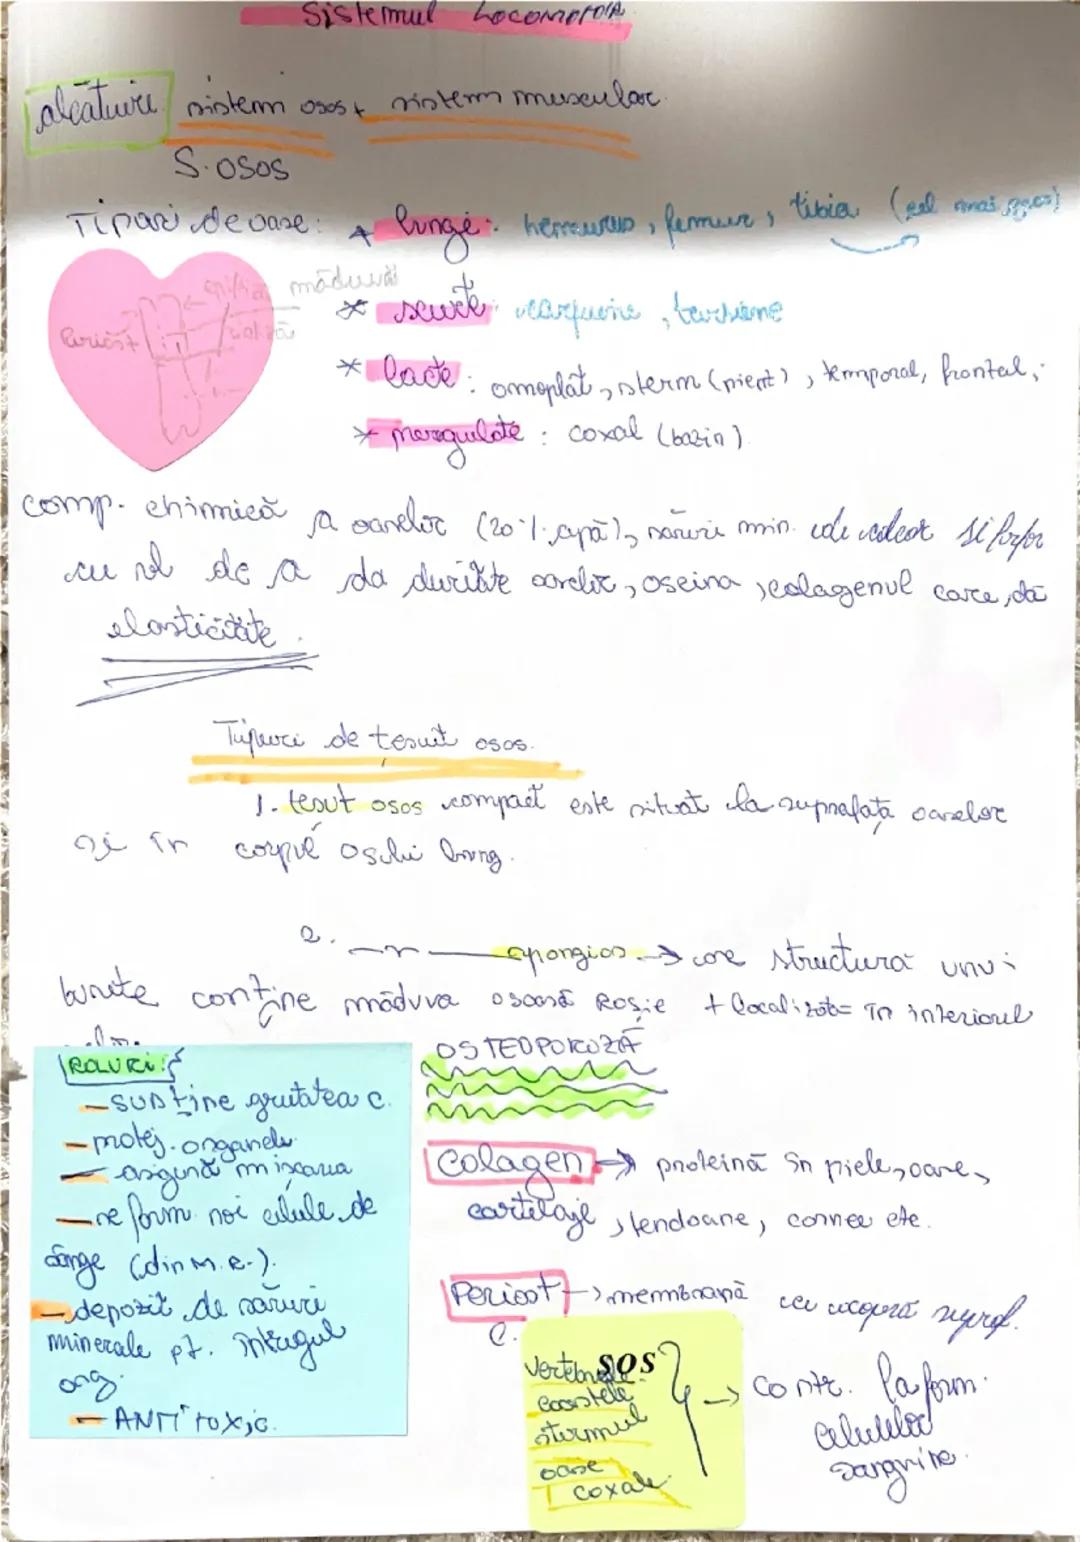 Sistemul Locomotor
alcătuire sistem osos + sistem muscular
S. osos
Tipari de oase: * lungi: , femur, tibia (cel mai )
epifiză măduvă
Periost
* scurte: carpiene, tarsiene
* late: omoplat, stern (piept), temporal, frontal,
* neregulate: coxal (bazin)
comp. chimică a oaselor (20% apă), săruri min. de calciu și fosfor
cu rol de a da duritate oaselor, oseina, colagenul care dă
elasticitate.
Tipuri de țesuit osos.
1. țesut osos compact este situat la suprafața oaselor
și în corpul osului lung.
2. —n— spongios → are structura unui
burete conține măduva osoasă Roșie + localizata= în interiorul
OSTEOPOROZĂ
ROLURI:
- susține greutatea c.
- protej. organele
- asigură mișcarea
- se form. noi celule de
sânge (din m. R.).
- depozit de săruri
minerale pt. întregul
org.
- ANTITOXIC.
Colagen → proteină în piele, oase,
cartilaje, tendoane, cornee etc.
Periost → membrană ce acoperă supraf.
SOS
vertebrele
coastele
sternul
oase
coxale
→ contr. la form.
celulelor
sangvine.